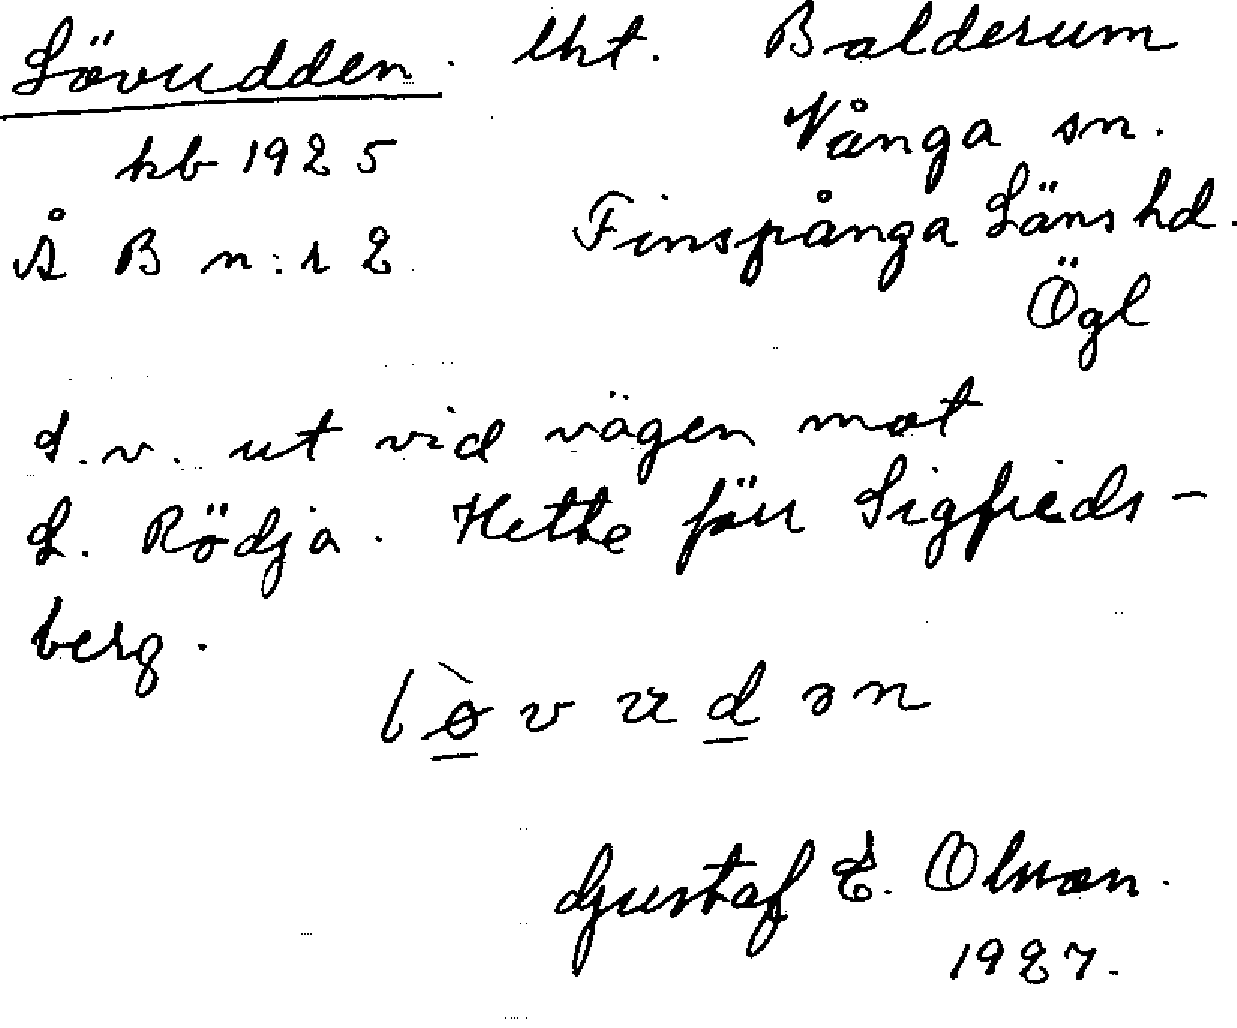 Lövudden. lht. Balderum
kb 1925 Vånga sn.
Å B n:r 2 Finspånga Läns hd.
Ögl
S.v. ut vid vägen mot
L. Rödja. Hette förr Sigfrids-
berg.
Gustaf E. Olsson.
1927.